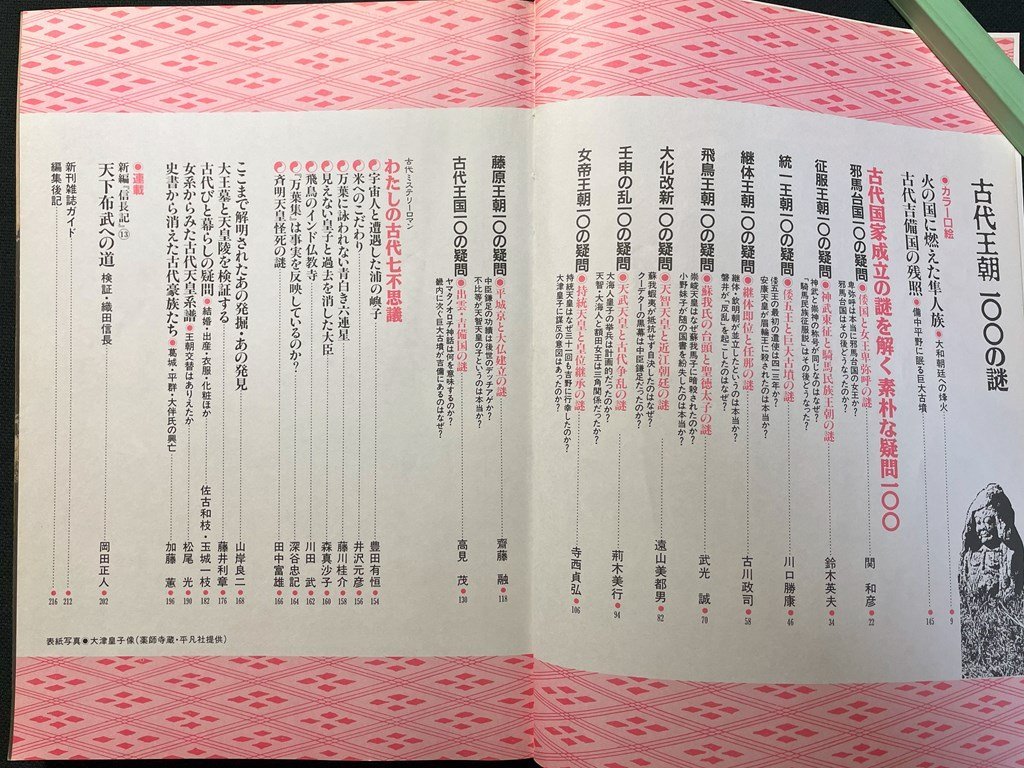 古代王朝一〇〇の謎
●カラー口絵
火の国に燃えた隼人族●大和朝廷への烽火 9
古代吉備国の残照●備中平野に眠る巨大古墳 145
古代国家成立の謎を解く素朴な疑問一〇〇
邪馬台国一〇の疑問●倭国と女王卑弥呼の謎 関 和彦 22
卑弥呼は本当に邪馬台国の女王か?
邪馬台国はその後どうなったのか?
征服王朝一〇の疑問●神武東征と騎馬民族王朝の謎 鈴木英夫 34
神武と崇神の称号が同じなのはなぜ?
「騎馬民族征服説」はその後どうなった?
統一王朝一〇の疑問●倭五王と巨大古墳の謎 川口勝康 46
倭五王の最初の遣使は四一三年か?
安康天皇が眉輪王に殺されたのは本当か?
継体王朝一〇の疑問●継体即位と任那の謎 古川政司 58
継体・欽明朝が並立したというのは本当か?
磐井が「反乱」を起こしたのはなぜ?
飛鳥王朝一〇の疑問●蘇我氏の台頭と聖徳太子の謎 武光 誠 70
崇峻天皇はなぜ蘇我馬子に暗殺されたのか?
小野妹子が隋の国書を紛失したのは本当か?
大化改新一〇の疑問●天智天皇と近江朝廷の謎 遠山美都男 82
蘇我蝦夷が抵抗せず自決したのはなぜ?
クーデターの黒幕は中臣鎌足だったのか?
壬申の乱一〇の疑問●天武天皇と古代争乱の謎 荊木美行 94
大海人皇子の挙兵は計画的だったのか?
天智・大海人と額田女王は三角関係だったか?
女帝王朝一〇の疑問●持統天皇と皇位継承の謎 寺西貞弘 106
持統天皇はなぜ三十一回も吉野に行幸したのか?
大津皇子に謀反の意図はあったのか?
藤原王朝一〇の疑問●平城京と大仏建立の謎 齋藤 融 118
中臣鎌足の功績は後世のデッチアゲか?
不比等が天智天皇の子というのは本当か?
古代王国一〇の疑問●出雲・吉備国の謎 高見 茂 130
ヤマタノオロチ神話は何を意味するのか?
畿内に次ぐ巨大古墳が吉備にあるのはなぜ?
古代ミステリーロマン
わたしの古代七不思議
宇宙人と遭遇した浦の嶼子 豊田有恒 154
米へのこだわり 井沢元彦 156
万葉に詠われない青白き六連星 藤川桂介 158
見えない皇子と過去を消した大臣 森真沙子 160
飛鳥のインド仏教寺 川田 武 162
『万葉集』は事実を反映しているのか? 深谷忠記 164
斉明天皇怪死の謎 田中富雄 166
ここまで解明されたあの発掘・あの発見 山岸良二 168
大王墓と天皇陵を検証する 藤井利章 176
古代びとと暮らしの疑問●結婚・出産・衣服・化粧ほか 佐古和枝・玉城一枝 182
女系からみた古代天皇系譜●王朝交替はありえたか 松尾 光 190
史書から消えた古代豪族たち●葛城・平群・大伴氏の興亡 加藤 蕙 196
●連載
新編『信長記』⑬
天下布武への道 検証・織田信長 岡田正人 202
新刊雑誌ガイド 212
編集後記 216
表紙写真●大津皇子像(薬師寺蔵・平凡社提供)